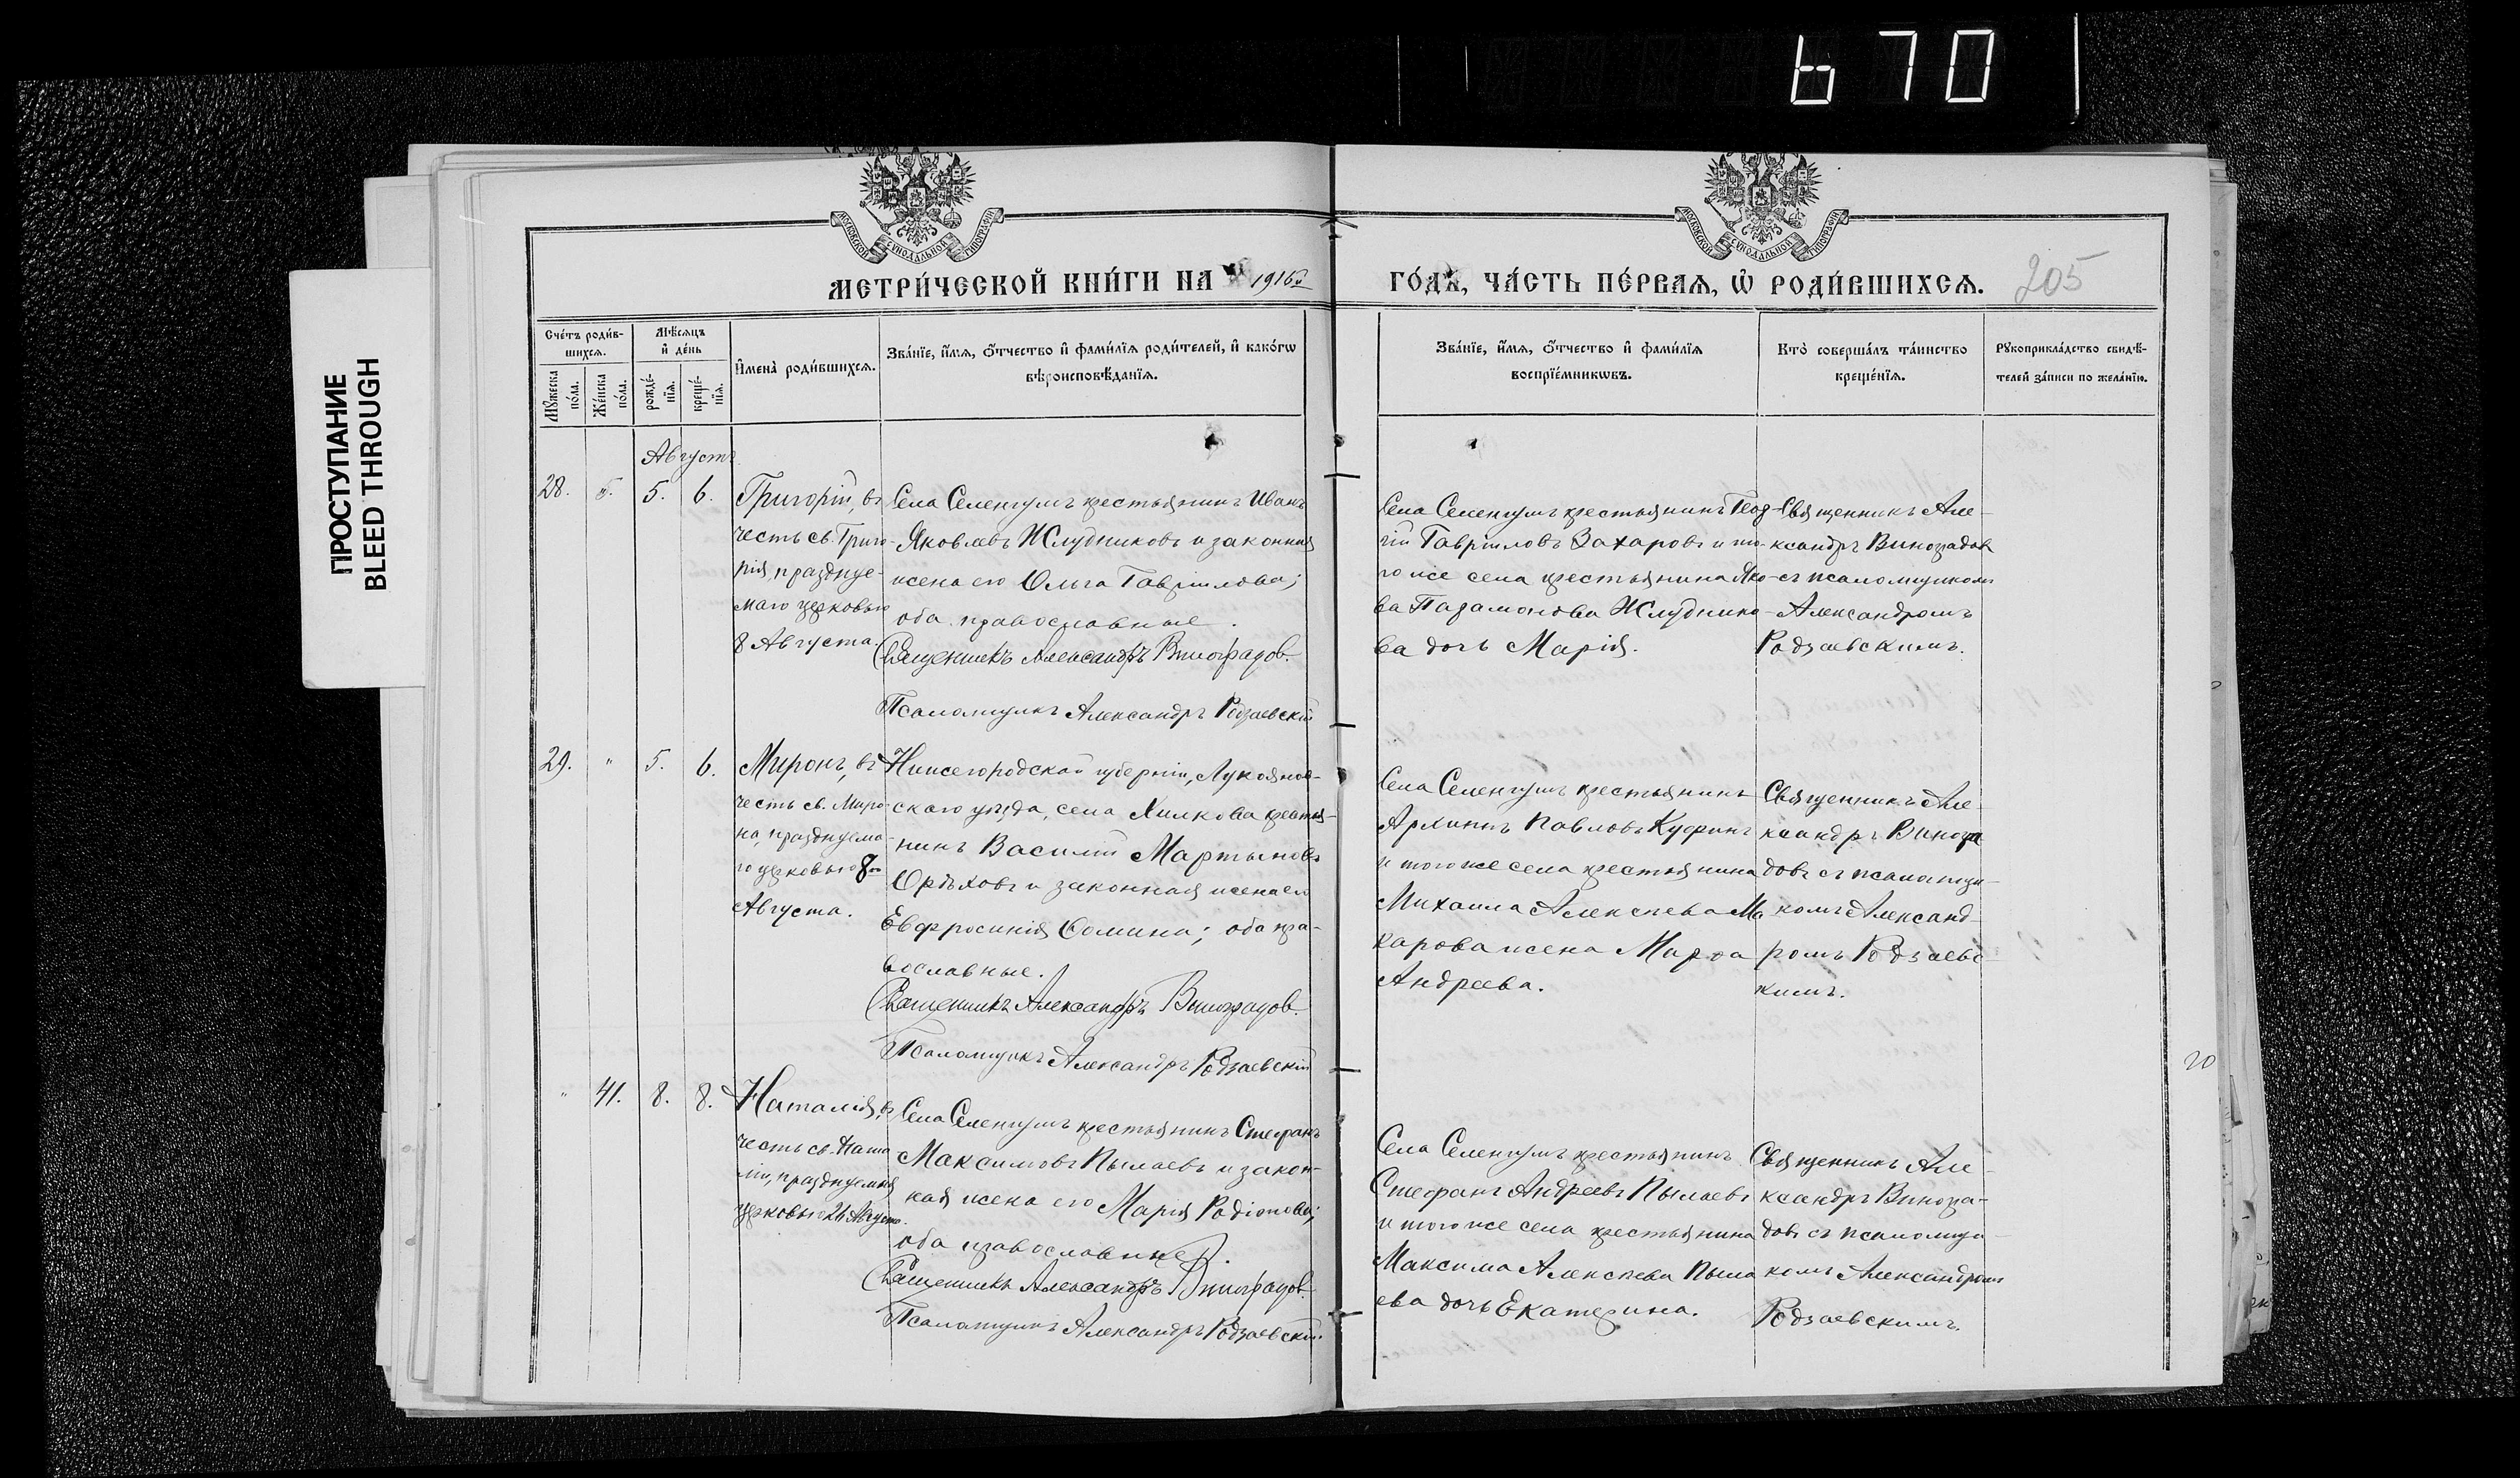 670
ПРОСТУПАНИЕ
BLEED THROUGH
МОСКОВСКОЙ СѴНОДАЛЬНОЙ ТИПОГРАФІИ
МОСКОВСКОЙ СѴНОДАЛЬНОЙ ТИПОГРАФІИ
МЕТРИ́ЧЕСКОЙ КНИ́ГИ НА 1916й
ГО́ДЪ, ЧА́СТЬ ПЕ́РВАѦ, Ѡ҆ РОДИ́ВШИХСѦ.
205
Сче́тъ роди́в-
шихсѧ.
Мꙋ́жеска по́ла.
Же́нска по́ла.
Мѣ́сѧцъ
и҆ де́нь
рожде́-
нїѧ.
креще́-
нїѧ.
И҆мена̀ роди́вшихсѧ.
Зва́нїе, и҆́мѧ, ѻ҆́тчество и҆ фами́лїѧ роди́телей, и҆ како́гѡ
вѣроисповѣ́данїѧ.
Зва́нїе, и҆́мѧ, ѻ҆́тчество и҆ фами́лїѧ
воспрїе́мникѡвъ.
Кто̀ соверша́лъ та́инство
креще́нїѧ.
Рꙋкоприкла́дство свидѣ́-
телей за́писи по жела́нїю.
Августъ
28. „ 5. 6.
Григорій, въ
честь св. Григо-
рія, празднуе-
маго церковью
8 Августа.
Села Селенгумъ крестьянинъ Иванъ
Яковлевъ Жлудниковъ и законная
жена его Ольга Гавриилова;
оба православные.
Священникъ Александръ Виноградов.
Псаломщикъ Александръ Родзаевскій
Села Селенгумъ крестьянинъ Геор-
гій Гаврииловъ Захаровъ и то-
го же села крестьянина Яко-
ва Парамонова Жлуднико-
ва дочь Марія.
Священникъ Але-
ксандръ Виноградовъ
съ псаломщикомъ
Александромъ
Родзаевскимъ.
29. „ 5. 6.
Миронъ, въ
честь св. Миро-
на, празднуема-
го церковью 8го
Августа.
Нижегородской губерніи, Лукоянов-
скаго уѣзда, села Хилкова крестья-
нинъ Василій Мартыновъ
Орѣховъ и законная жена его
Евфросинія Ѳомина; оба пра-
вославные.
Священникъ Александръ Виноградов.
Псаломщикъ Александръ Родзаевскій
Села Селенгумъ крестьянинъ
Архипъ Павловъ Куфринъ
и того же села крестьянина
Михаила Алексѣева Ма
карова жена Марѳа
Андреева.
Священникъ Але-
ксандръ Виногра
довъ съ псаломщи-
комъ Александ-
ромъ Родзаевс-
кимъ.
„ 41. 8. 8.
Наталія, въ
честь св. Ната
ліи, празднуемыя
церковью 26 Августа.
Села Селенгумъ крестьянинъ Стефанъ
Максимовъ Пылаевъ и закон-
ная жена его Марія Родіонова;
оба православные.
Священникъ Александръ Виноградов.
Псаломщикъ Александръ Родзаевскій.
Села Селенгумъ крестьянинъ
Стефанъ Андреевъ Пылаевъ
и того же села крестьянина
Максима Алексѣева Пыла
ева дочь Екатерина.
Священникъ Але-
ксандръ Виногра-
довъ съ псаломщи-
комъ Александромъ
Родзаевскимъ.
20